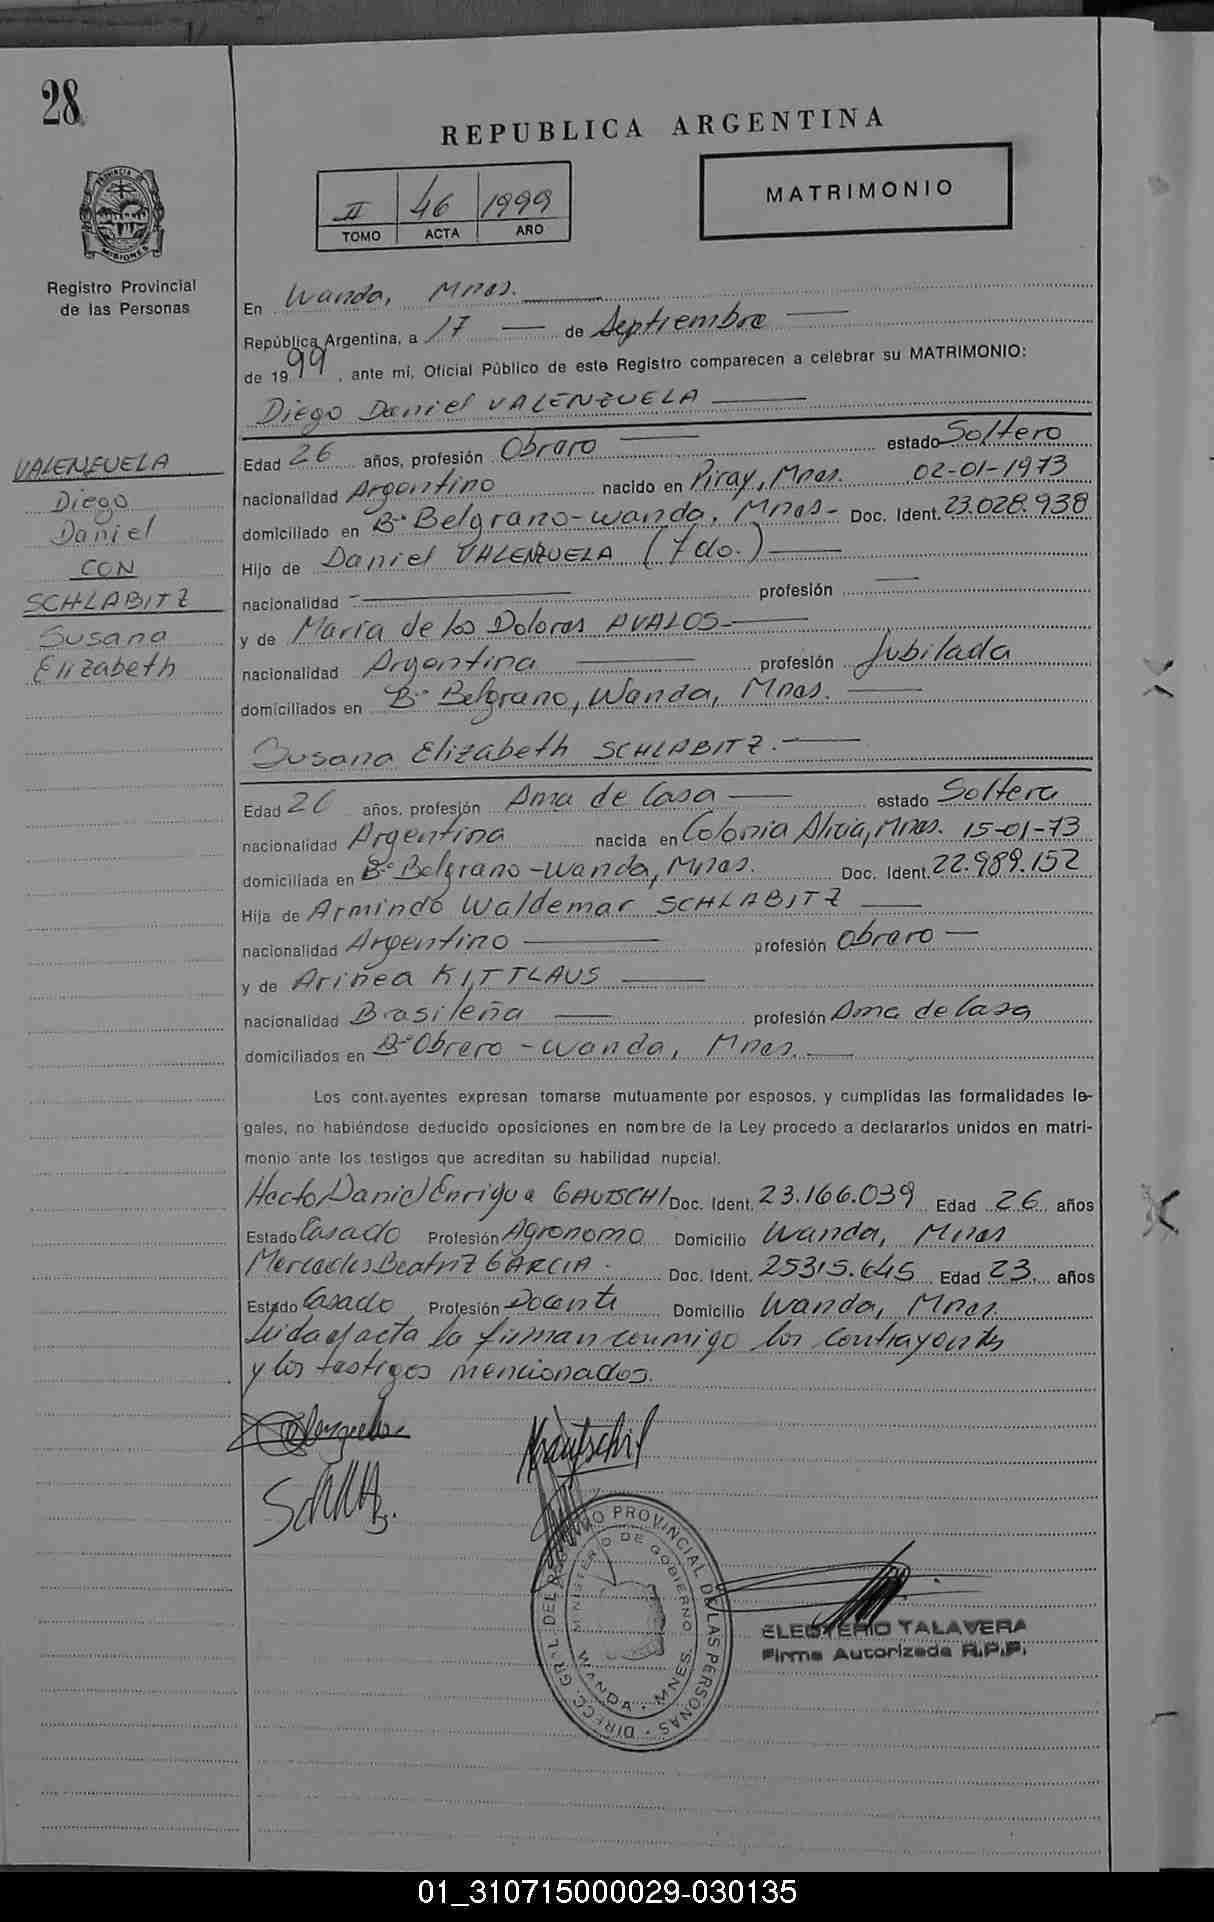 28
REPUBLICA ARGENTINA
II 46 1999
TOMO ACTA AÑO
MATRIMONIO
PROVINCIA DE MISIONES
Registro Provincial
de las Personas
En Wanda, Mnes.
República Argentina, a 17 — de Septiembre —
de 1999, ante mí, Oficial Público de este Registro comparecen a celebrar su MATRIMONIO:
Diego Daniel VALENZUELA —
VALENZUELA
Diego
Daniel
CON
SCHLABITZ
Susana
Elizabeth
Edad 26 años, profesión Obrero — estado Soltero
nacionalidad Argentino nacido en Piray, Mnes. 02-01-1973
domiciliado en B° Belgrano-Wanda, Mnes- Doc. Ident. 23.028.938
Hijo de Daniel VALENZUELA (fdo.) —
nacionalidad — profesión —
y de María de los Dolores AVALOS —
nacionalidad Argentina — profesión Jubilada
domiciliados en B° Belgrano, Wanda, Mnes. —
Susana Elizabeth SCHLABITZ. —
Edad 26 años, profesión Ama de Casa — estado Soltera
nacionalidad Argentina nacida en Colonia Alicia, Mnes. 15-01-73
domiciliada en B° Belgrano-Wanda, Mnes. Doc. Ident. 22.989.152
Hija de Armindo Waldemar SCHLABITZ —
nacionalidad Argentino — profesión Obrero —
y de Arinea KITTLAUS —
nacionalidad Brasileña — profesión Ama de Casa
domiciliados en B° Obrero - Wanda, Mnes. —
Los contrayentes expresan tomarse mutuamente por esposos, y cumplidas las formalidades le-
gales, no habiéndose deducido oposiciones en nombre de la Ley procedo a declararlos unidos en matri-
monio ante los testigos que acreditan su habilidad nupcial.
Hector Daniel Enrique GAUTSCHI Doc. Ident. 23.166.039 Edad 26 años
Estado Casado Profesión Agronomo Domicilio Wanda, Mnes
Mercedes Beatriz GARCIA. Doc. Ident. 25315.645 Edad 23 años
Estado Casado Profesión Docente Domicilio Wanda, Mnes.
Leida el acta la firman conmigo los contrayentes
y los testigos mencionados.
DIRECC. GR'L. DEL REGISTRO PROVINCIAL DE LAS PERSONAS
MINISTERIO DE GOBIERNO
WANDA - MNES.
ELEUTERIO TALAVERA
Firma Autorizada R.P.P.
01_310715000029-030135